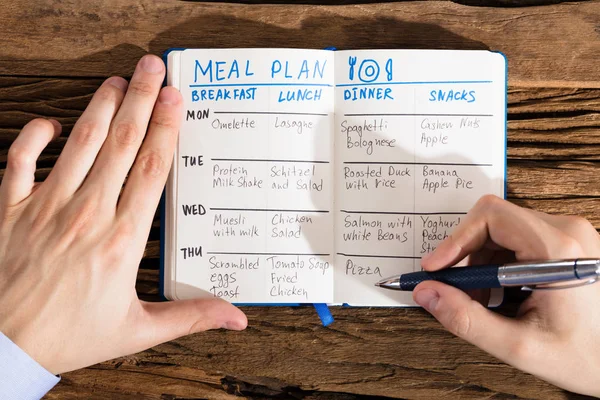 MEAL PLAN
BREAKFAST LUNCH DINNER SNACKS
MON
Omelette Lasagne Spaghetti Cashew Nuts
Bolognese Apple
TUE
Protein Schitzel Roasted Duck Banana
Milk Shake and Salad with rice Apple Pie
WED
Muesli Chicken Salmon with Yoghurt
with milk Salad white Beans Peach
Str
THU
Scrambled Tomato Soup Pizza
eggs Fried
Toast Chicken